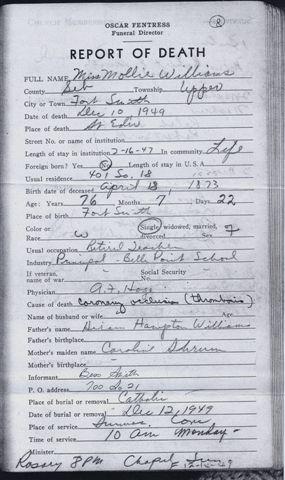 OSCAR FENTRESS
Funeral Director
REPORT OF DEATH
FULL NAME Miss Mollie Williams
County Seb Township Upper
City or Town Fort Smith
Date of death Dec 10 1949
Place of death St Edw
Street No. or name of institution
Length of stay in institution 7-16-47 In community Life
Foreign born? Yes No Length of stay in U. S. A.
Usual residence 401 So. 18
Birth date of deceased April 18, 1873
Age: Years 76 Months 7 Days 22
Place of birth Fort Smith
Color or Race W Single, widowed, married, divorced Sex F
Usual occupation Retired Teacher
Industry Principal - Belle Point School
If veteran, name of war Social Security No.
Physician A. F. Hoge
Cause of death coronary occlusion (thrombosis)
Name of husband or wife Age
Father's name Hiram Hampton Williams
Father's birthplace
Mother's maiden name Carolin Shrum
Mother's birthplace
Informant Bess
P. O. address 700 So 21
Place of burial or removal Catholic
Date of burial or removal Dec 12, 1949
Place of service Con
Time of service 10 am Monday -
Minister
Rosary 8 PM Chapel Sun